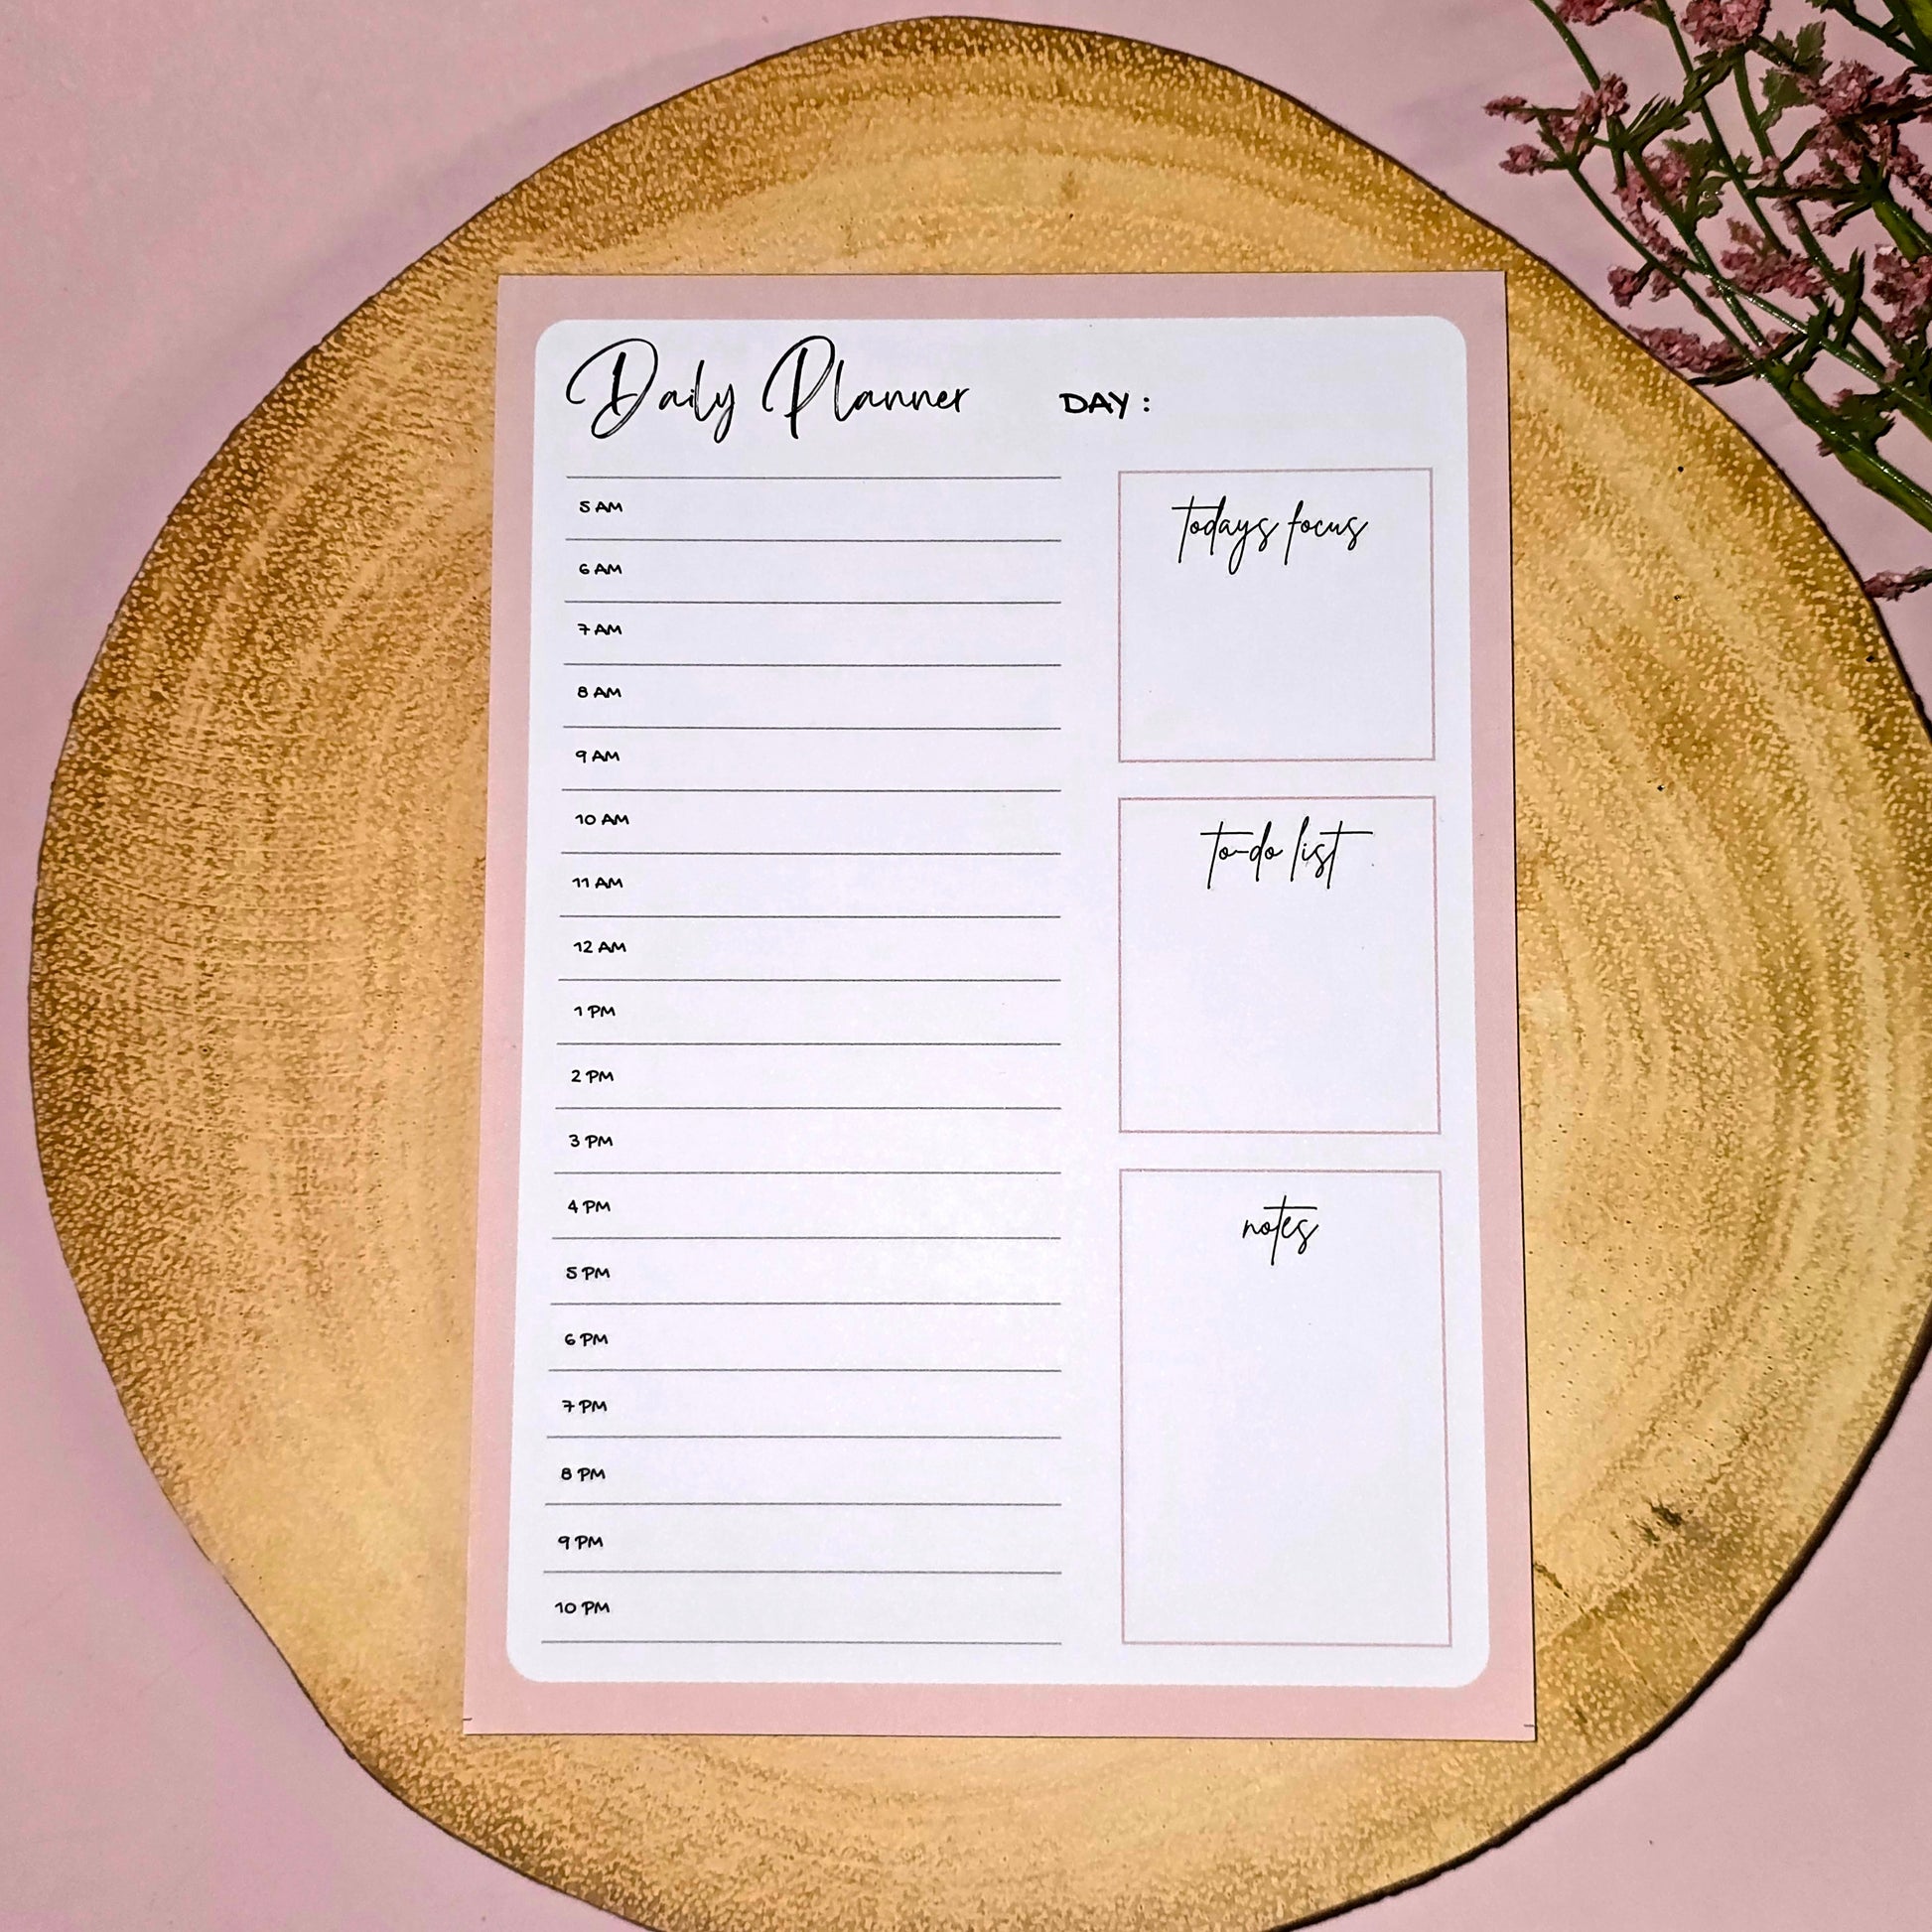 Daily Planner DAY :
5 AM
6 AM
7 AM
8 AM
9 AM
10 AM
11 AM
12 AM
1 PM
2 PM
3 PM
4 PM
5 PM
6 PM
7 PM
8 PM
9 PM
10 PM
todays focus
to-do list
notes